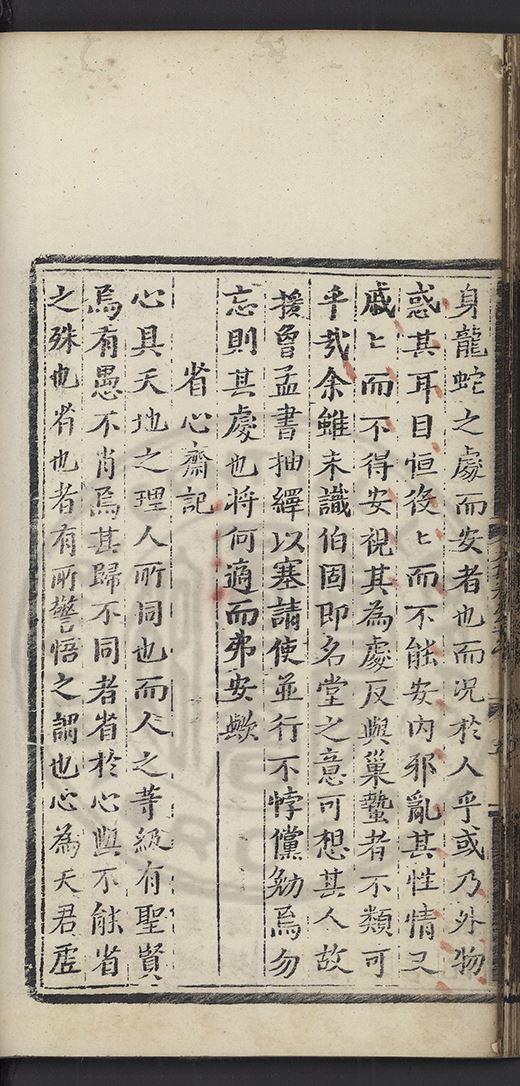 身龍蛇之處而安者也而况於人乎或乃外物
惑其耳目恒役〻而不能安内邪亂其性情又
戚〻而不得安視其為處反與巢蟄者不類可
乎哉余雖未識伯固即名堂之意可想其人故
援曾孟書抽繹以塞請使並行不悖儻勉焉勿
忘則其處也将何適而弗安歟
省心齋記
心具天地之理人所同也而人之等級有聖賢
焉有愚不肖焉其歸不同者省於心與不能省
之殊也省也者有所警悟之謂也心為天君虛